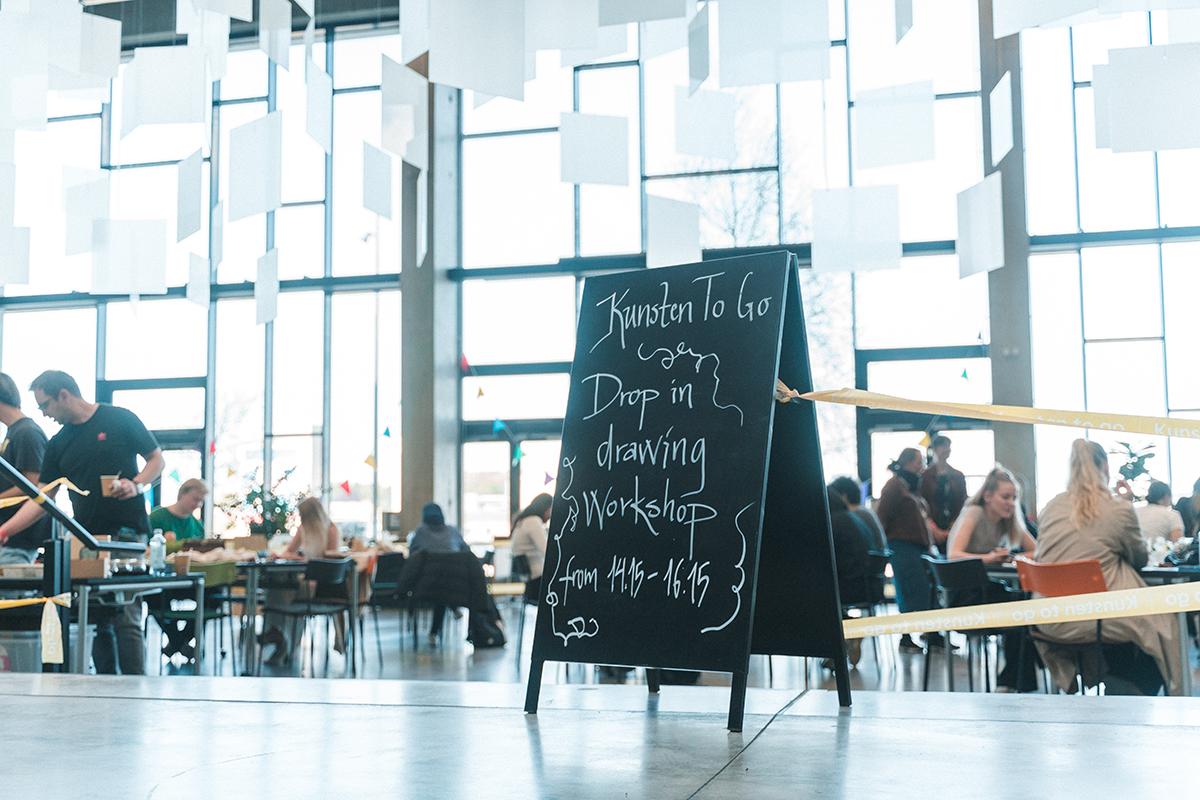 Kunsten To Go
Drop in
drawing
Workshop
from 14.15-16.15
to go
Kuns
Kunsten to go
Kunsten to go